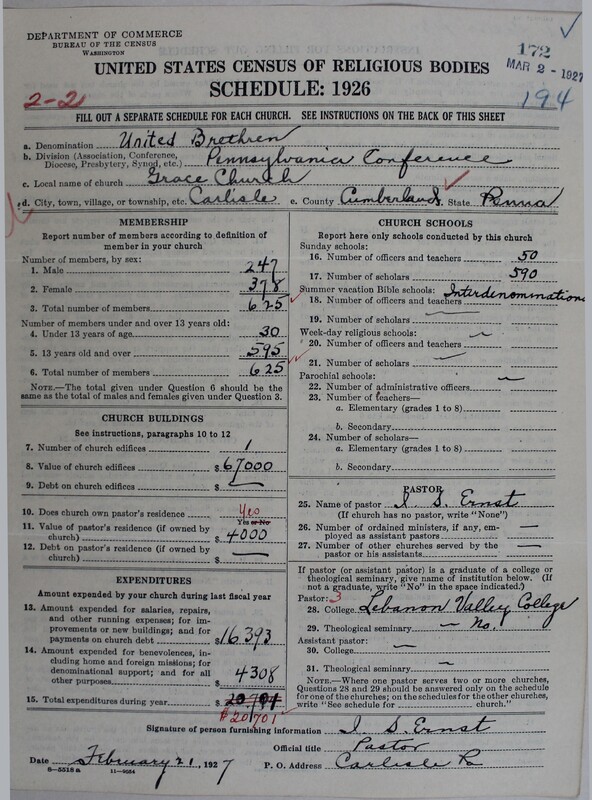 DEPARTMENT OF COMMERCE
BUREAU OF THE CENSUS
WASHINGTON
172
MAR 2 - 1927
194
UNITED STATES CENSUS OF RELIGIOUS BODIES
SCHEDULE: 1926
2-2
FILL OUT A SEPARATE SCHEDULE FOR EACH CHURCH. SEE INSTRUCTIONS ON THE BACK OF THIS SHEET
a. Denomination United Brethren
b. Division (Association, Conference, Diocese, Presbytery, Synod, etc.) Pennsylvania Conference
c. Local name of church Grace Church
d. City, town, village, or township, etc. Carlisle e. County Cumberland State Penna
MEMBERSHIP
Report number of members according to definition of
member in your church
Number of members, by sex:
1. Male 247
2. Female 378
3. Total number of members 625
Number of members under and over 13 years old:
4. Under 13 years of age 30
5. 13 years old and over 595
6. Total number of members 625
NOTE.—The total given under Question 6 should be
same as the total of males and females given under Question 3.
CHURCH BUILDINGS
See instructions, paragraphs 10 to 12
7. Number of church edifices 1
8. Value of church edifices $67000
9. Debt on church edifices $ —
10. Does church own pastor's residence Yes
Yes or No
11. Value of pastor's residence (if owned by
church) $4000
12. Debt on pastor's residence (if owned by
church) $ —
EXPENDITURES
Amount expended by your church during last fiscal year
13. Amount expended for salaries, repairs,
and other running expenses; for im-
provements or new buildings; and for
payments on church debt $16393
14. Amount expended for benevolences,
including home and foreign missions; for
denominational support; and for all
other purposes $ 4308
15. Total expenditures during year $
$20701
CHURCH SCHOOLS
Report here only schools conducted by this church
Sunday schools:
16. Number of officers and teachers 50
17. Number of scholars 590
Summer vacation Bible schools:
18. Number of officers and teachers Interdenomination
19. Number of scholars —
Week-day religious schools: —
20. Number of officers and teachers
21. Number of scholars —
Parochial schools: —
22. Number of administrative officers
23. Number of teachers—
a. Elementary (grades 1 to 8)
b. Secondary
24. Number of scholars—
a. Elementary (grades 1 to 8)
b. Secondary
PASTOR
25. Name of pastor I. S. Ernst
(If church has no pastor, write "None")
26. Number of ordained ministers, if any, em-
ployed as assistant pastors —
27. Number of other churches served by the
pastor or his assistants —
If pastor (or assistant pastor) is a graduate of a college or
theological seminary, give name of institution below. (If
not a graduate, write "No" in the space indicated.)
Pastor: 3
28. College Lebanon Valley College
29. Theological seminary — No.
Assistant pastor:
30. College —
31. Theological seminary —
NOTE.—Where one pastor serves two or more churches,
Questions 28 and 29 should be answered only on the schedule
for one of the churches; on the schedules for the other churches,
write "See schedule for ______ church."
Signature of person furnishing information I. S. Ernst
Official title Pastor
Date February 21, 1927 P. O. Address Carlisle Pa
8—5518a 11—9054